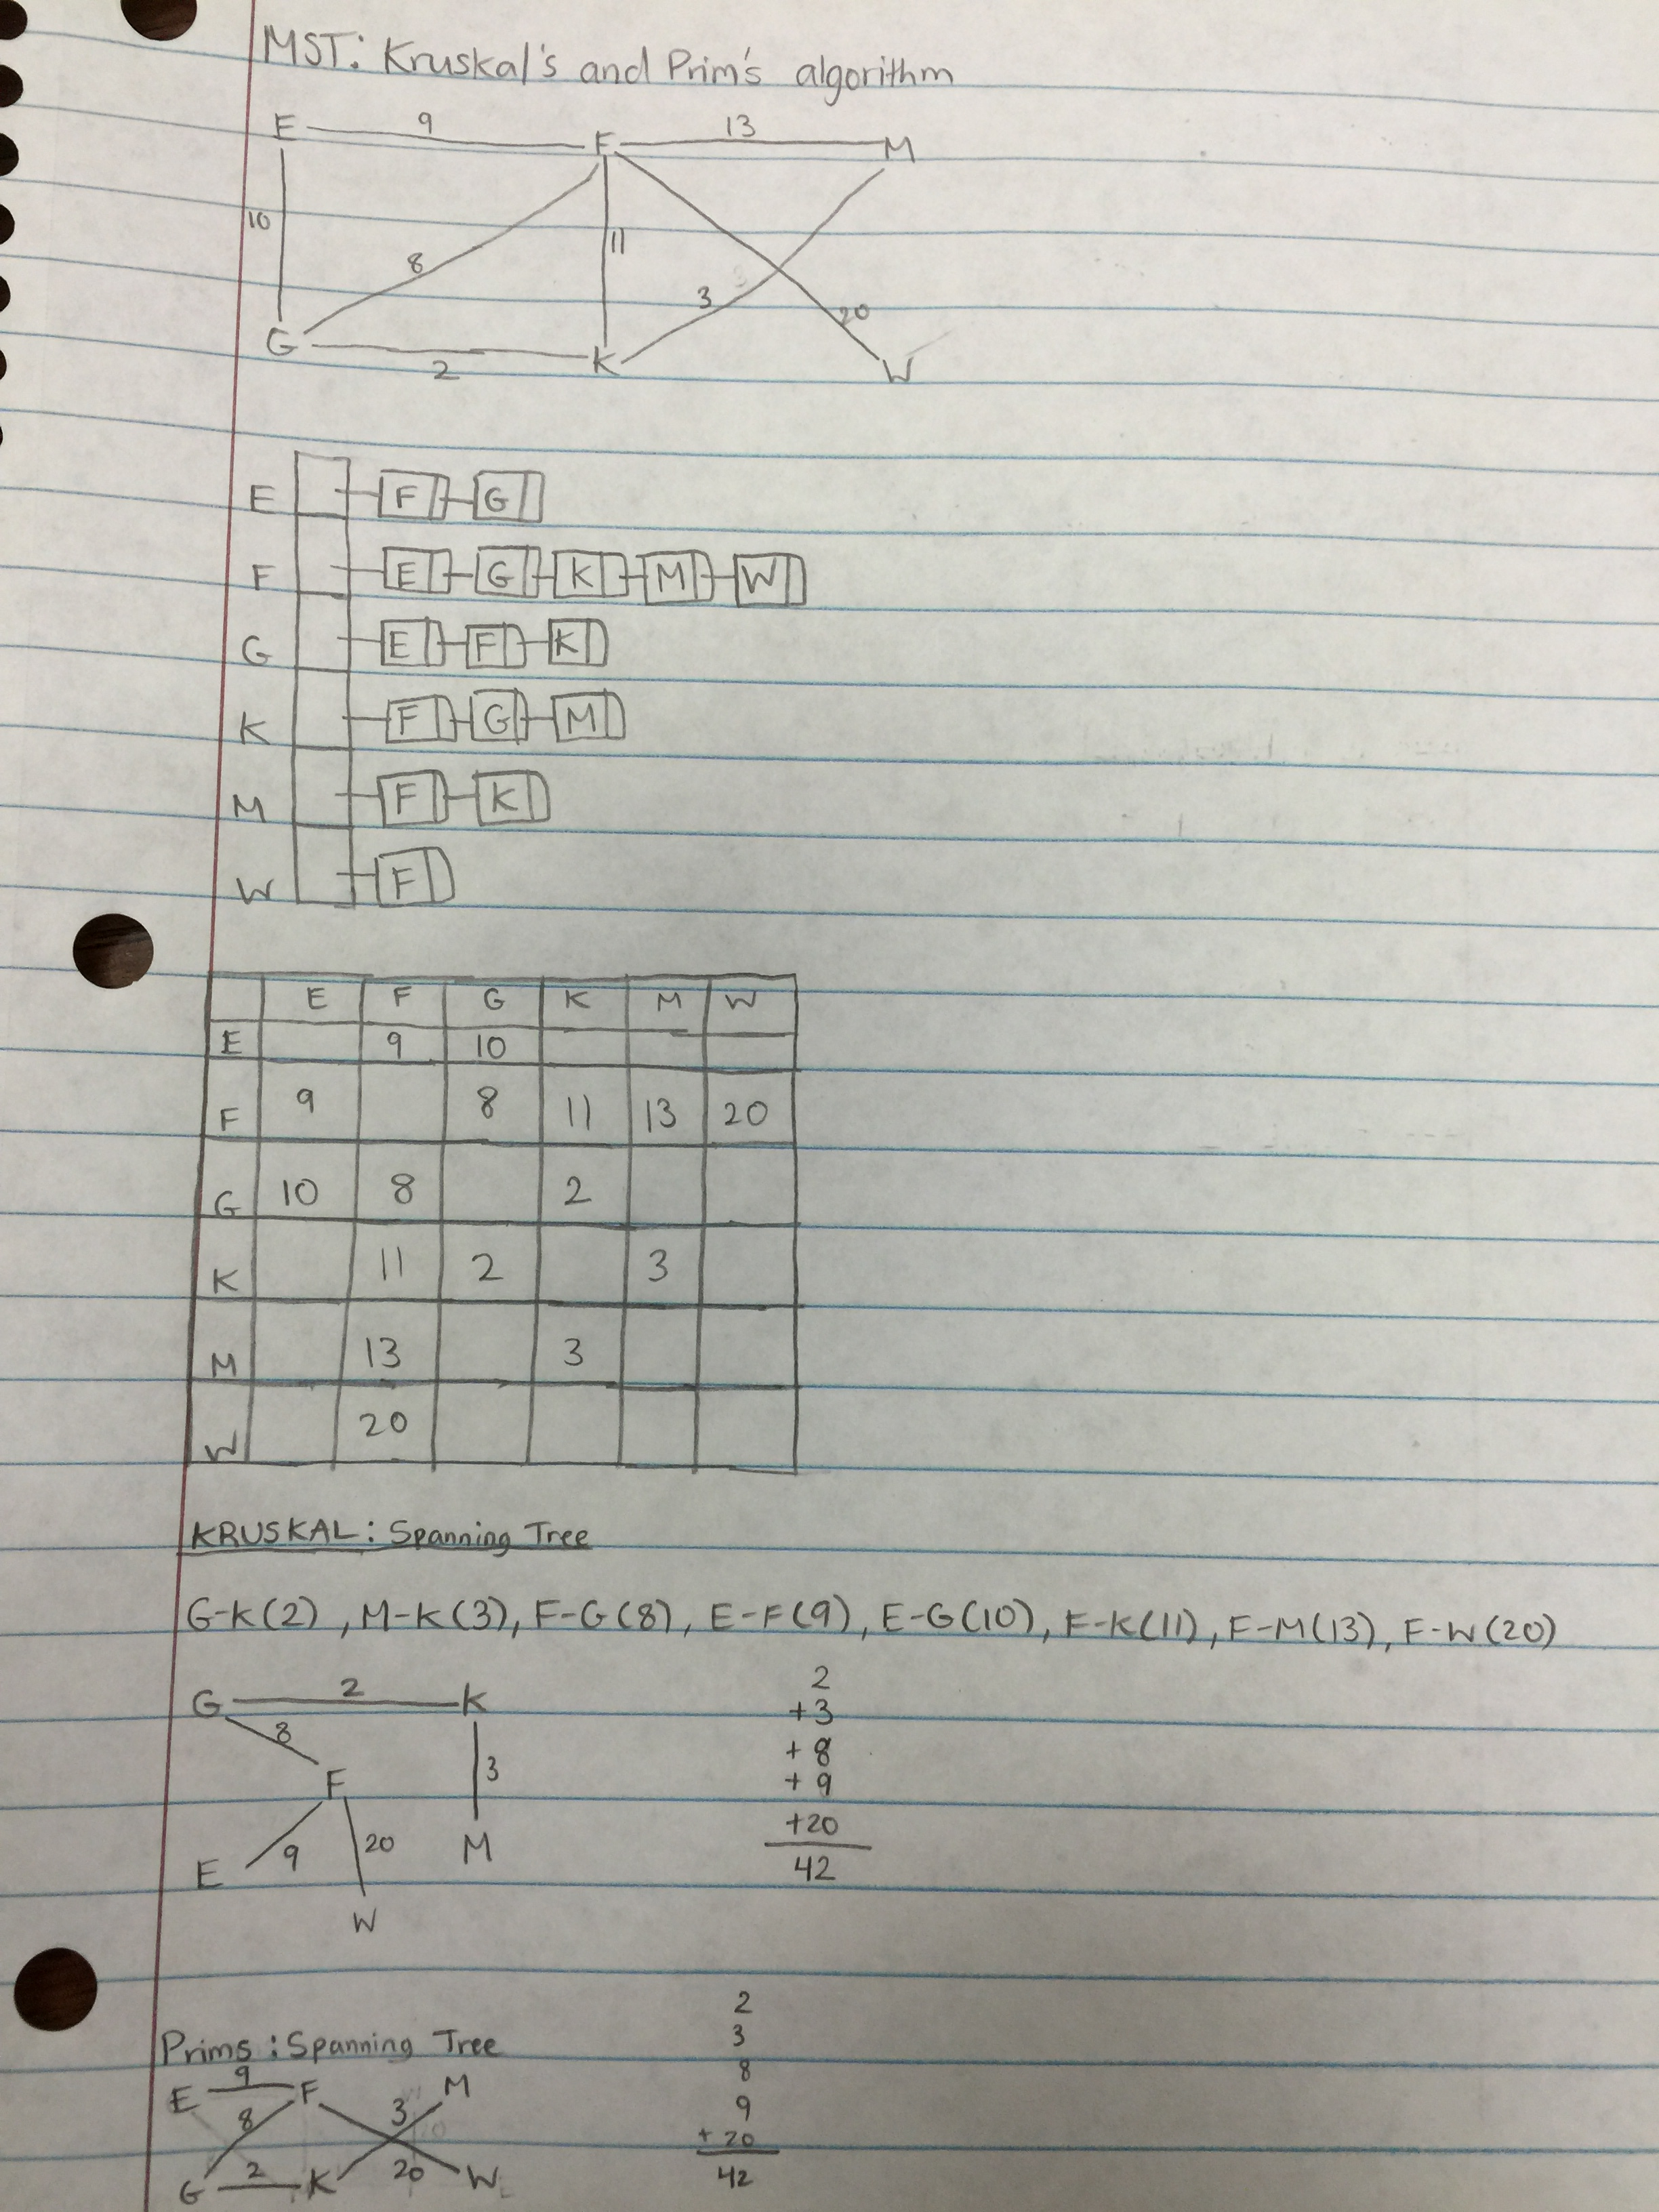 MST: Kruskal's and Prim's algorithm
E 9 F 13 M
10 8 11 3 20
G 2 K W
E F G
F E G K M W
G E F K
K F G M
M F K
W F
E F G K M W
E 9 10
F 9 8 11 13 20
G 10 8 2
K 11 2 3
M 13 3
W 20
KRUSKAL: Spanning Tree
G-K(2), M-K(3), F-G(8), E-F(9), E-G(10), F-K(11), F-M(13), F-W(20)
G 2 K
8 3
F
E 9 20 M
W
2
+3
+8
+9
+20
42
Prims: Spanning Tree
E 9 F M
8 3
G 2 K 20 W
2
3
8
9
+ 20
42